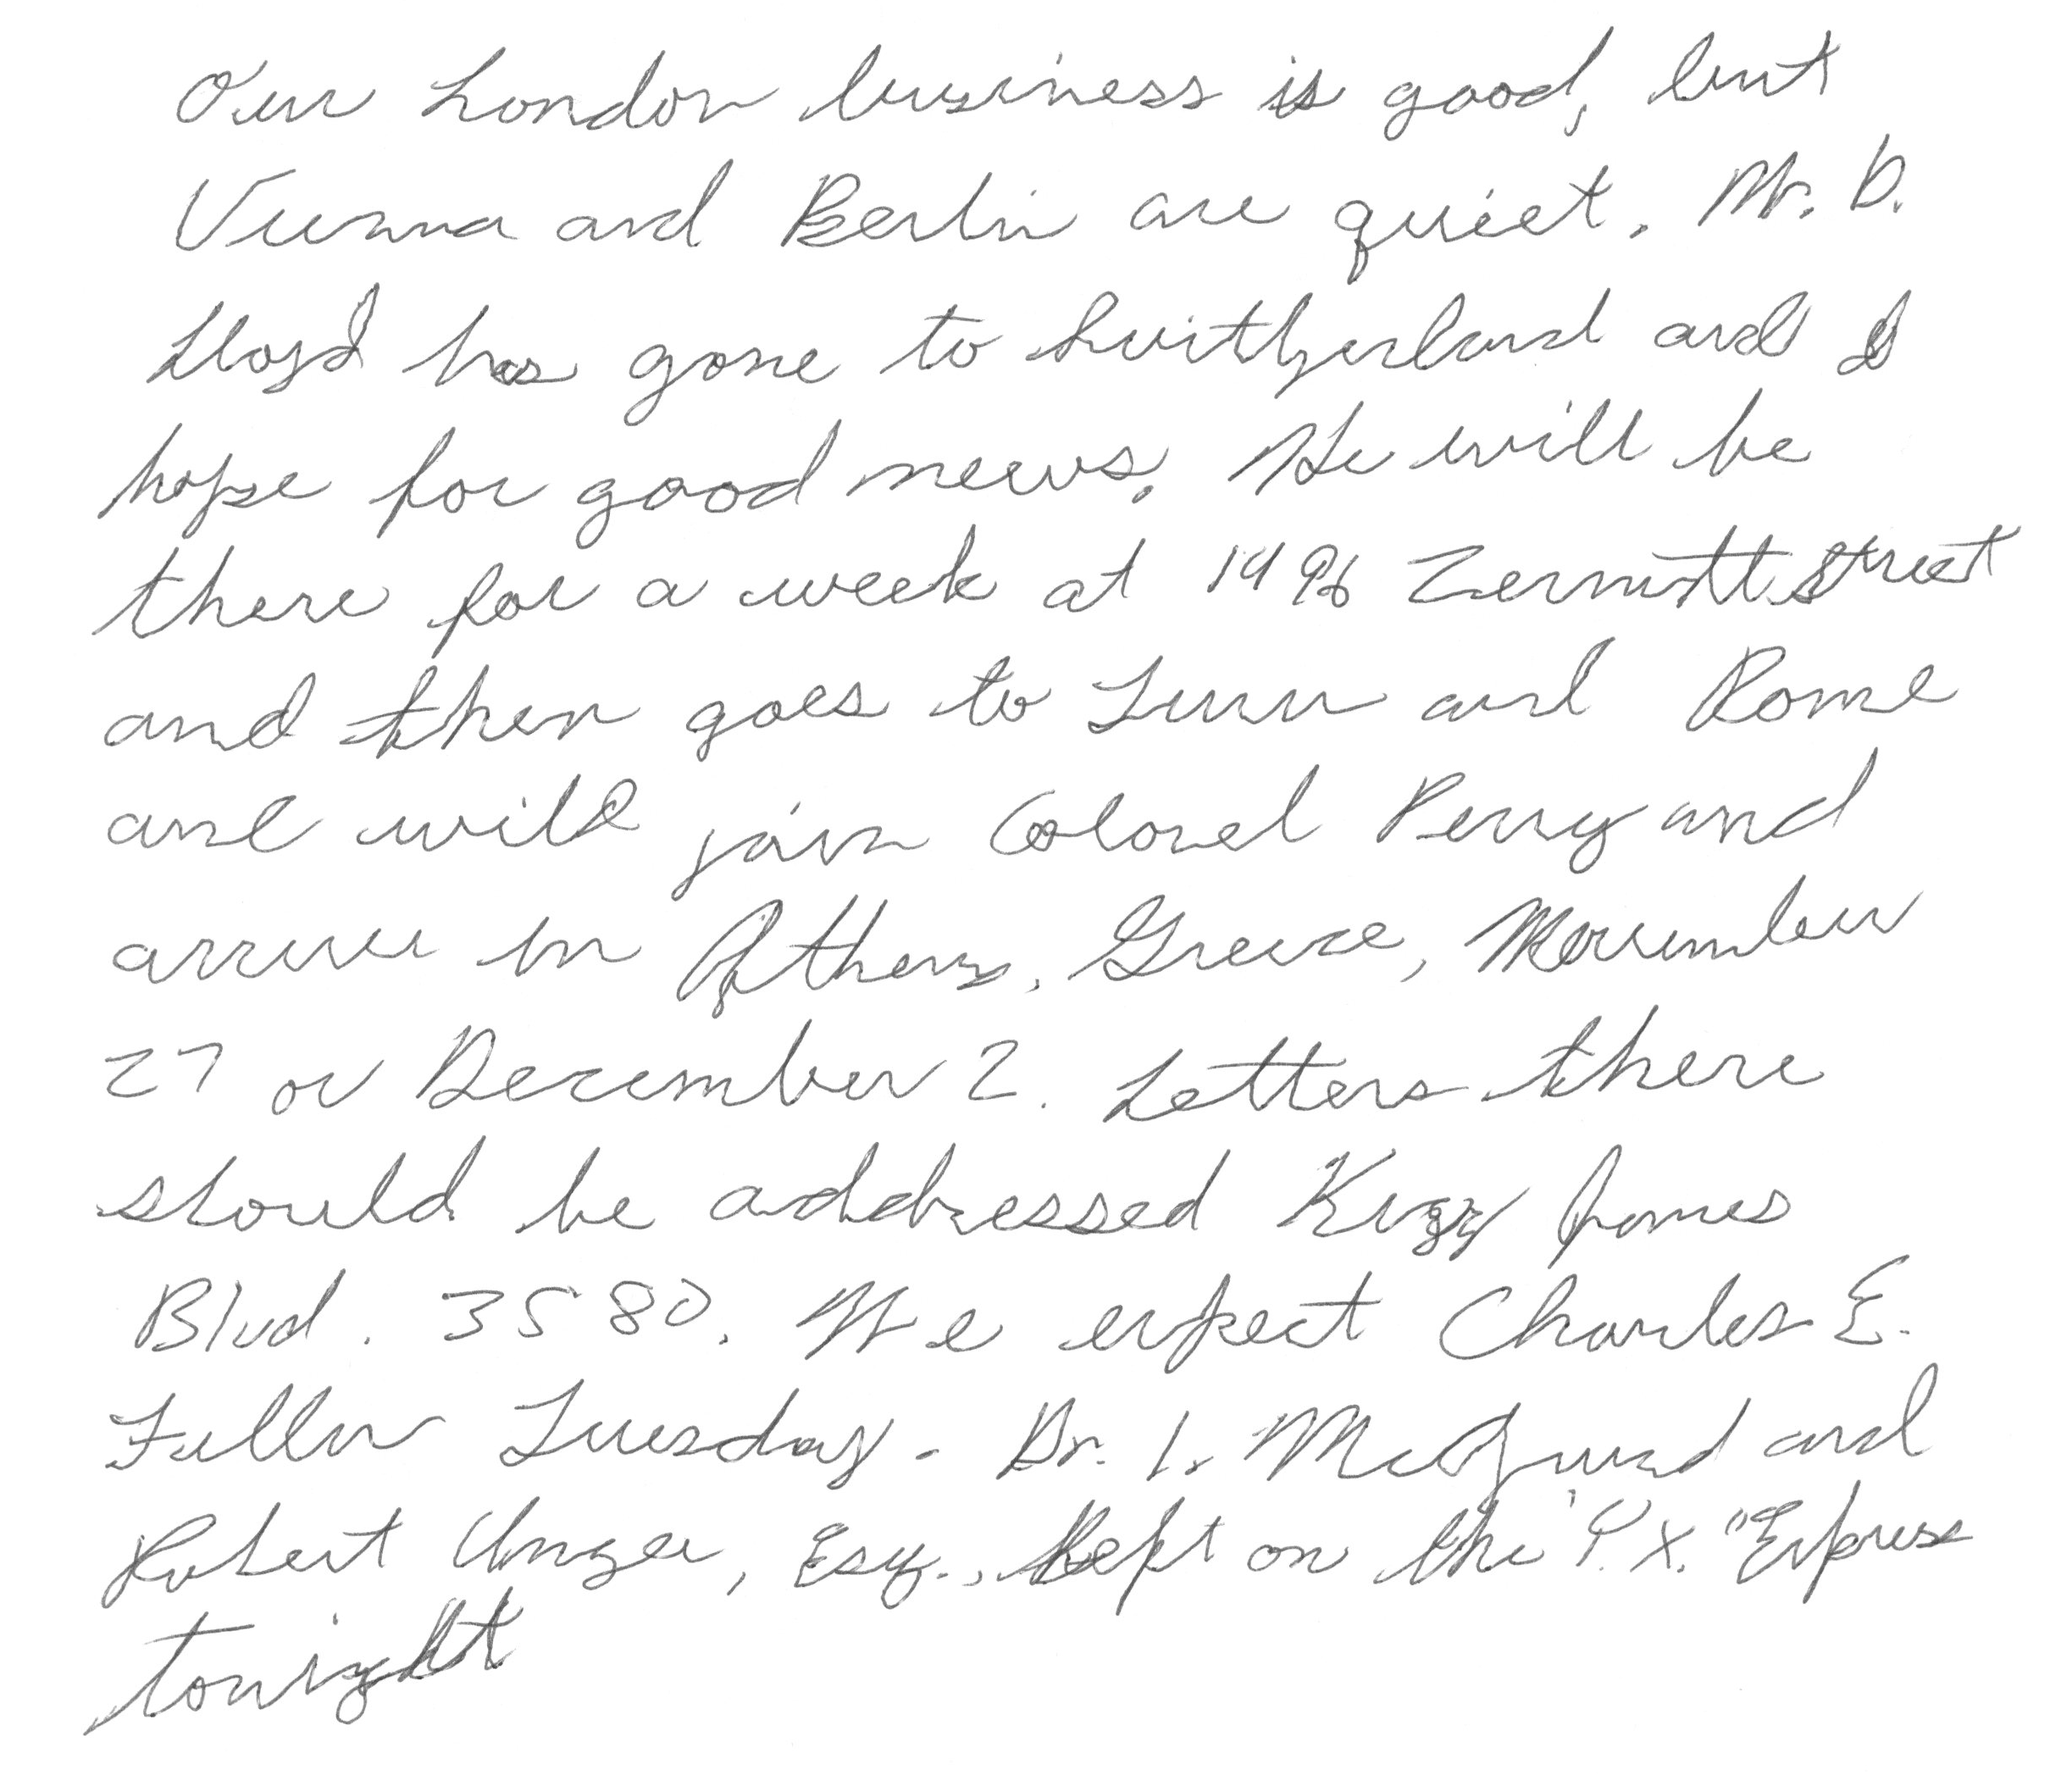 Our London business is good, but
Vienna and Berlin are quiet. Mr. D.
Lloyd has gone to Switzerland and I
hope for good news. He will be
there for a week at 1496 Zermott Street
and then goes to Turin and Rome
and will join Colonel Perry and
arrive in Athens, Greece, November
27 or December 2. Letters there
should be addressed King James
Blvd. 3580. We expect Charles E.
Fuller Tuesday. Dr. L. McQuaid and
Robert Unger, Esq., left on the "Y.X." Express
tonight